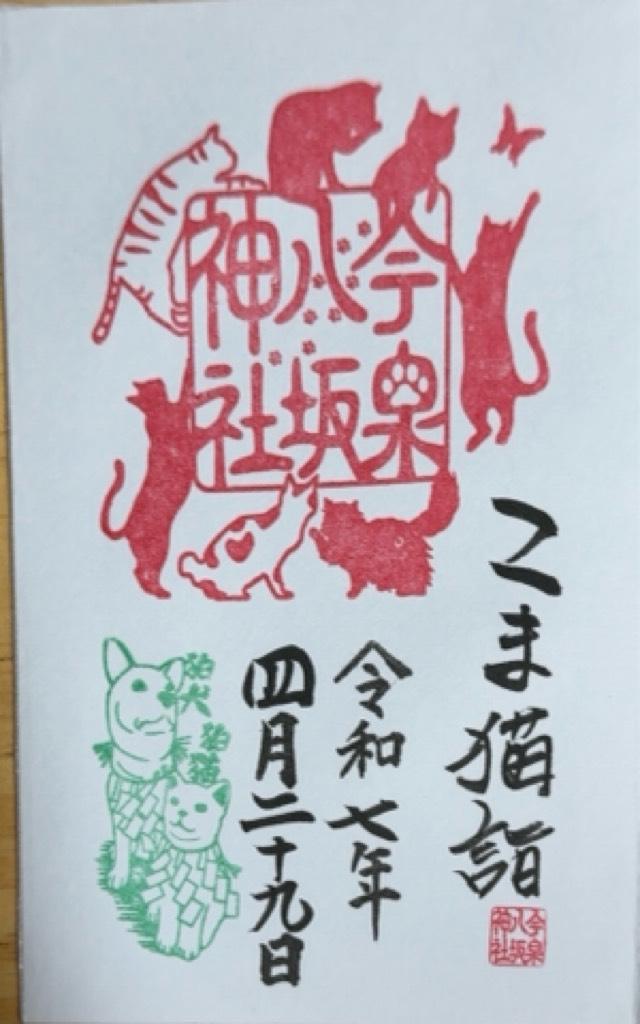 今泉
八坂
神社
こま猫詣
今泉
八坂
神社
令和七年
四月二十九日
狛犬
狛猫